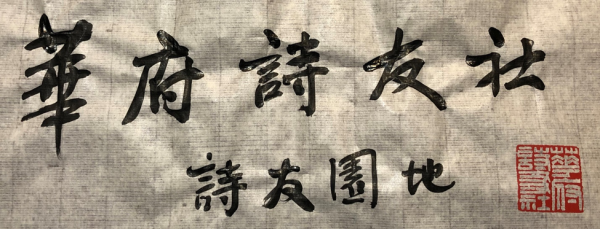 華府詩友社
詩友園地
華府
詩友社